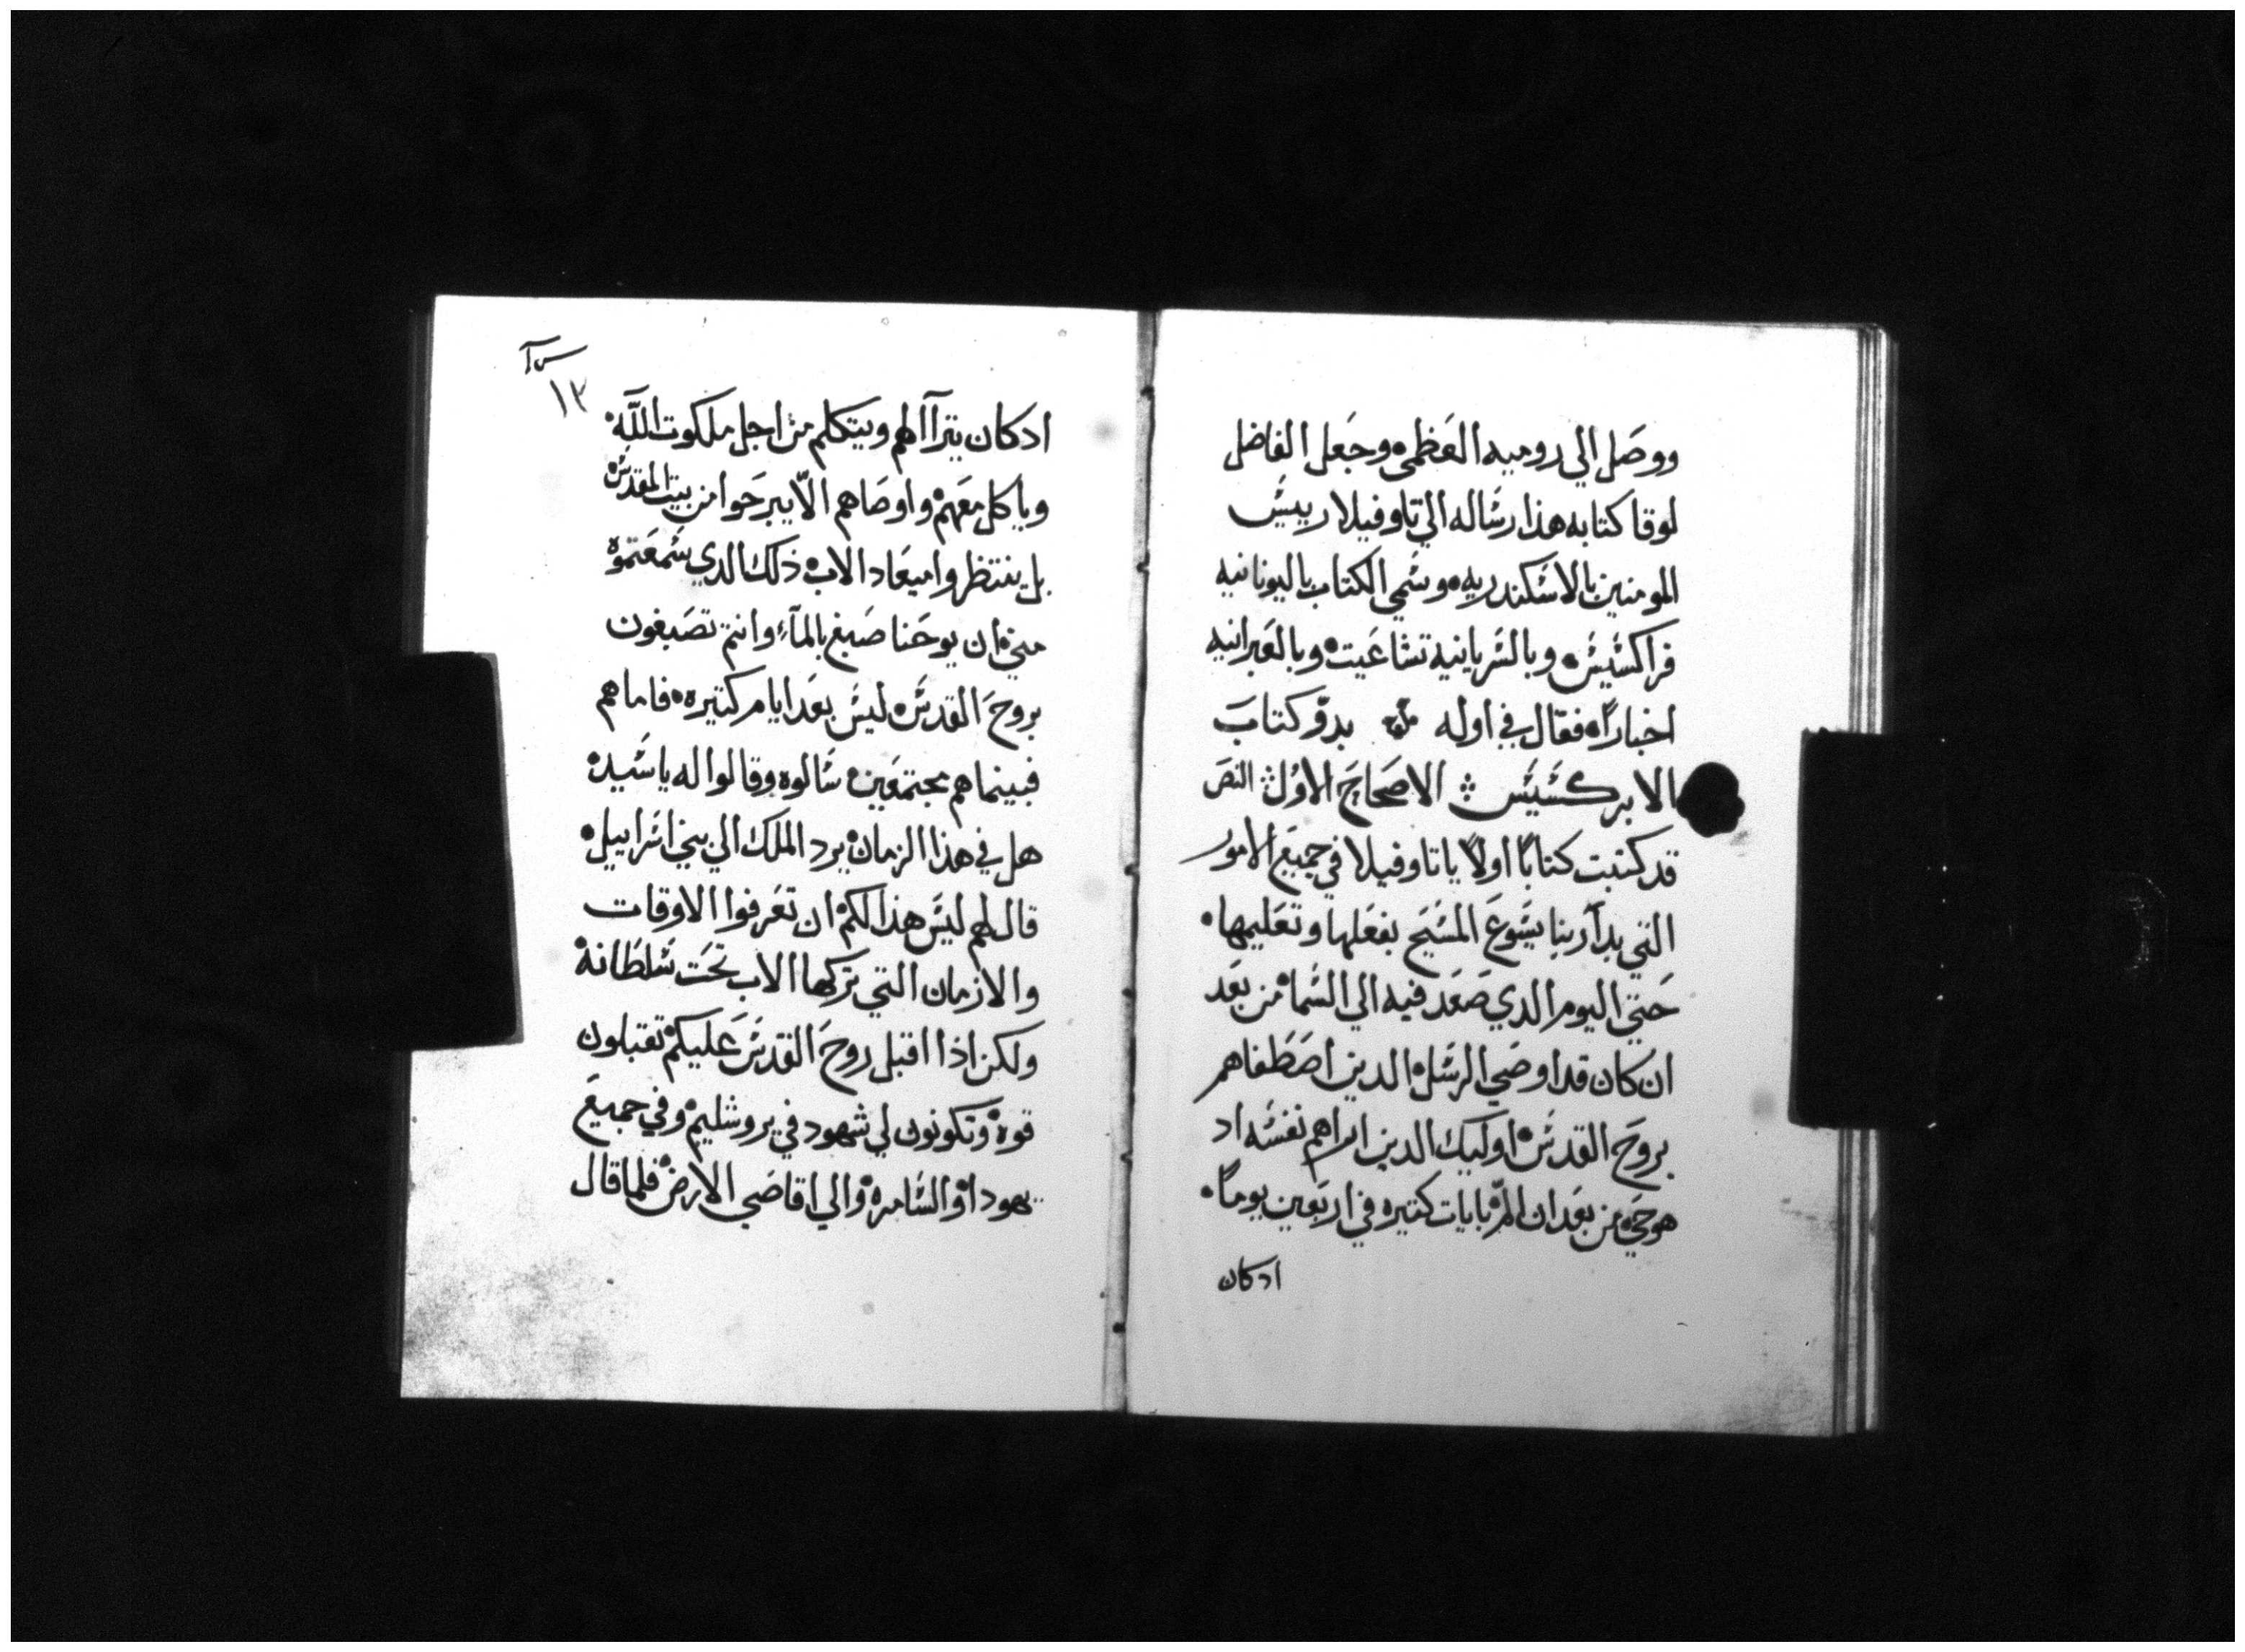 ووصل الي روميه العظمي وجعل الفاضل
لوقا كتابه هذا رساله الي تاوفيلا رييس
المومنين بالاسكندريه وسمي الكتاب باليونانيه
فراكسيس وبالسريانيه تشاعيت وبالعبرانيه
اخباراً فقال في اوله بدو كتاب
الابركسيس الاصحاح الاول النص
قد كتبت كتاباً اولاً ياتاوفيلا في جميع الامور
التي بدا ربنا يسوع المسيح بفعلها وتعليمها
حتي اليوم الدي صعد فيه الي السما من بعد
ان كان قد اوصي الرسل الدين اصطفاهم
بروح القدس اوليك الدين اراهم نفسه اد
هو حي من بعد ان الم بايات كتيره في اربعين يوماً
ادكان
١٢
ادكان يترآا لهم ويتكلم من اجل ملكوت الله
وياكل معهم واوصاهم الّا يبرحوا من بيت المقدس
بل ينتظروا ميعاد الاب ذلك الدي سمعتموه
مني ان يوحنا صبغ بالمآء وانتم تصبغون
بروح القدس ليس بعد ايام كتيره فاما هم
فبينما هم مجتمعين سالوه وقالوا له ياسيد
هل في هذا الزمان يرد الملك الي بني اسراييل
قال لهم ليس هذا لكم ان تعرفوا الاوقات
والازمان التي تركها الاب تحت سلطانه
ولكن اذا اقبل روح القدس عليكم تقبلون
قوة وتكونون لي شهود في يروشليم وفي جميع
يهودا والسامره والي اقاصي الارض فلما قال